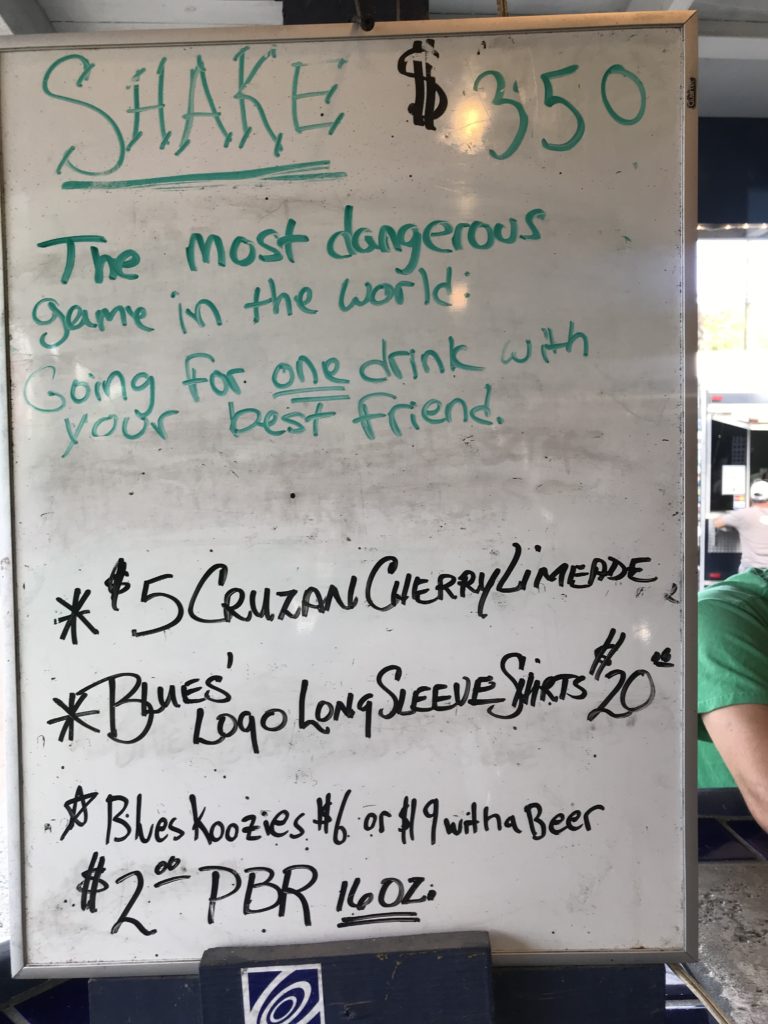 SHAKE $ 350
The most dangerous
game in the world:
Going for one drink with
your best friend.
* $5 CRUZAN CHERRY LIMEADE
* BLUES' LOGO LONG SLEEVE SHIRTS $20 00
☆ Blues Koozies $6 or $9 with a Beer
$2 00 PBR 16 OZ.